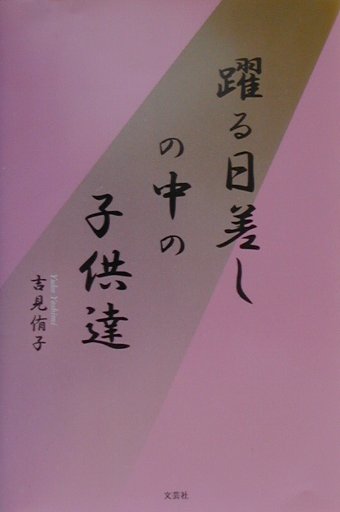 躍る日差し
の中の
子供達
吉見侑子
文芸社